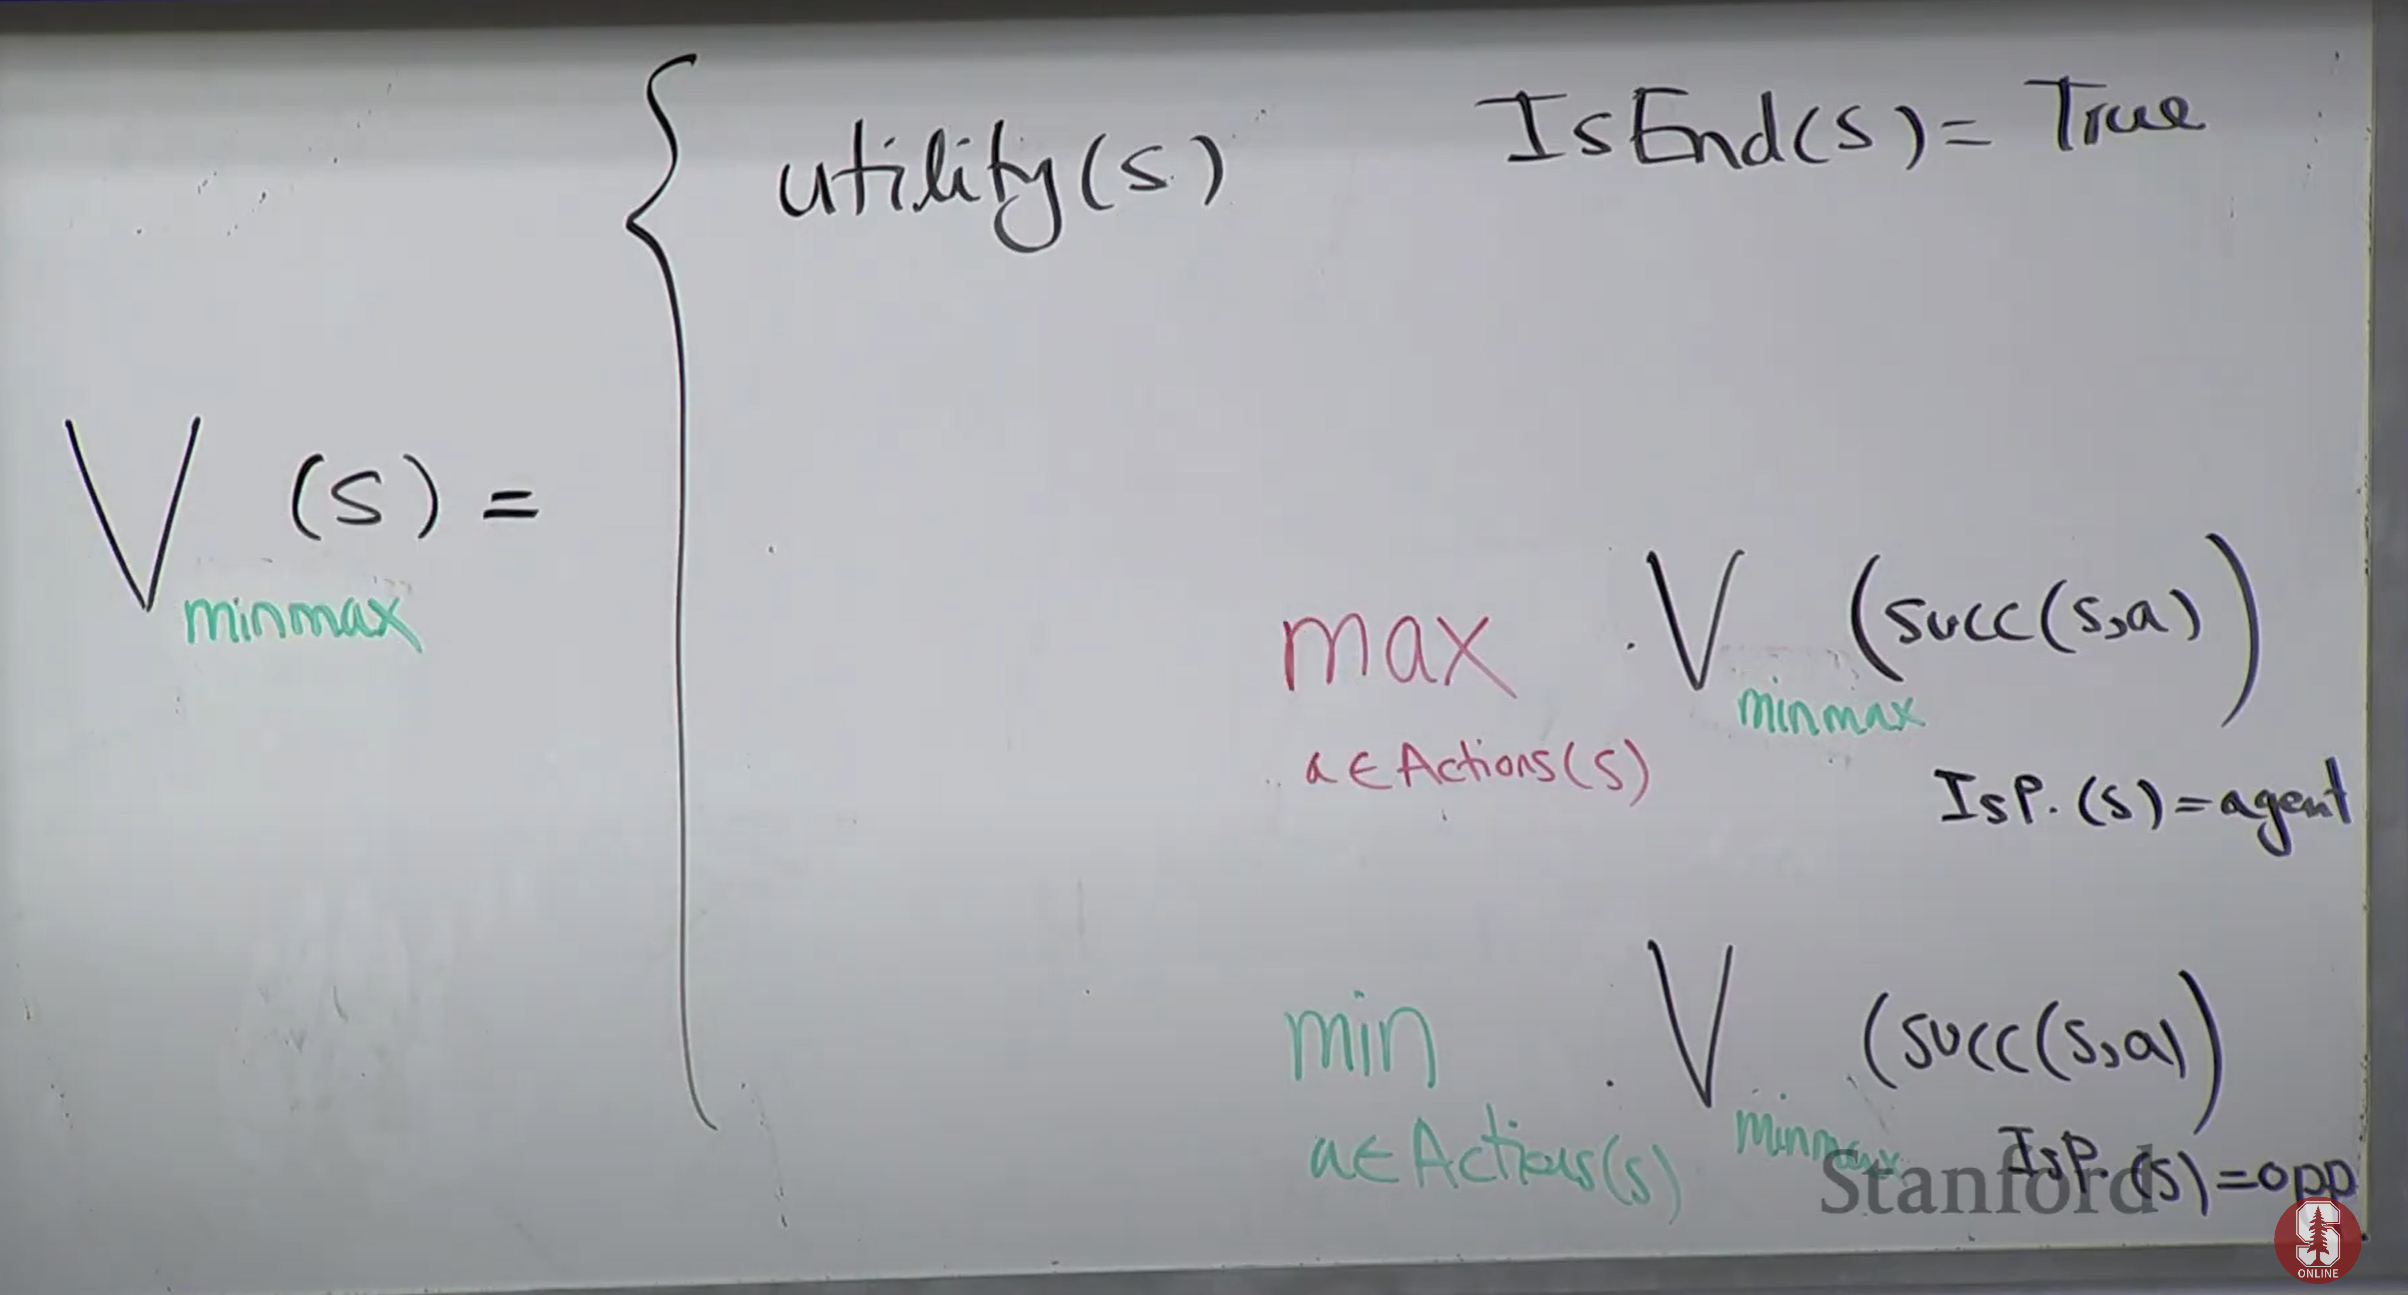 utility(s) IsEnd(s) = True
V minmax (s) =
max a∈Actions(s) V minmax (succ(s,a))
IsP.(s)=agent
min a∈Actions(s) V minmax (succ(s,a))
IsP.(s)=opp
Stanford
S
ONLINE